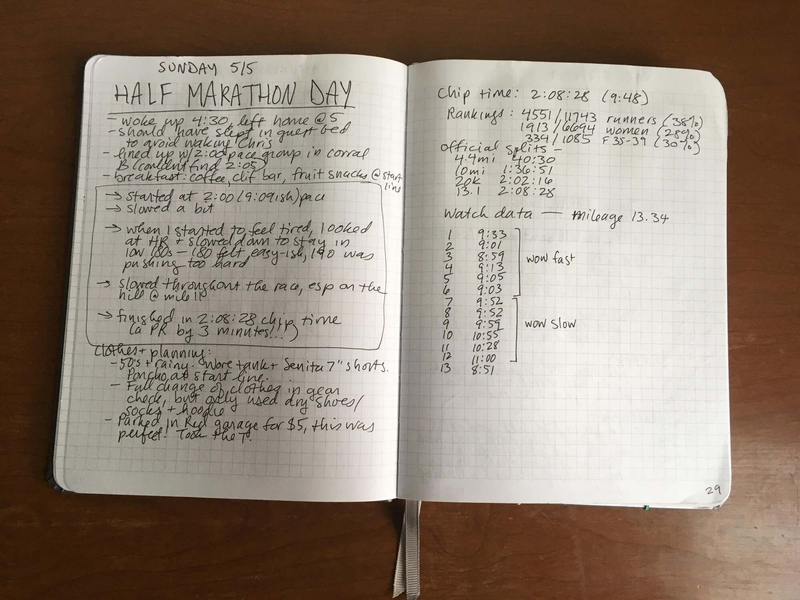 SUNDAY 5/5
HALF MARATHON DAY
- woke up 4:30, left home @ 5
- should have slept in guest bed
to avoid waking Chris
- lined up w/ 2:00 pace group in corral
B (couldn't find 2:05)
- breakfast: coffee, clif bar, fruit snacks @ start
line
→ started at 2:00 (9:09ish) pace
→ slowed a bit
→ when I started to feel tired, looked
at HR + slowed down to stay in
low 180s - 180 felt easy-ish, 190 was
pushing too hard
→ slowed throughout the race, esp on the
hill @ mile 11
→ finished in 2:08:28 chip time
(a PR by 3 minutes!!!)
Clothes + planning:
- 50s + rainy. Wore tank + Senita 7" shorts.
Poncho at start line.
- Full change of clothes in gear
check, but only used dry shoes/
socks + hoodie
- Parked in garage for $5, this was
perfect! Took the T.
Chip time: 2:08:28 (9:48)
Rankings: 4551/11743 runners (38%)
1913/6694 women (28%)
334/1085 F35-39 (30%)
Official splits -
4.4mi 40:30
10mi 1:36:51
20k 2:02:16
13.1 2:08:28
Watch data — mileage 13.34
1 9:33
2 9:01
3 8:59
4 9:13
5 9:05
6 9:03
wow fast
7 9:52
8 9:52
9 9:59
10 10:55
11 10:28
12 11:00
wow slow
13 8:51
29